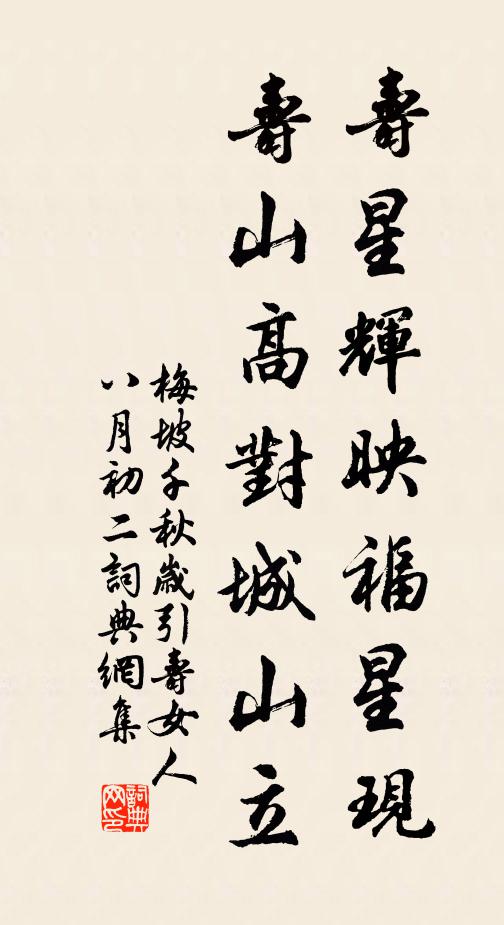 壽星輝映福星現
壽山高對城山立
梅坡千秋歲引壽女人
八月初二詞典網集
詞典网印